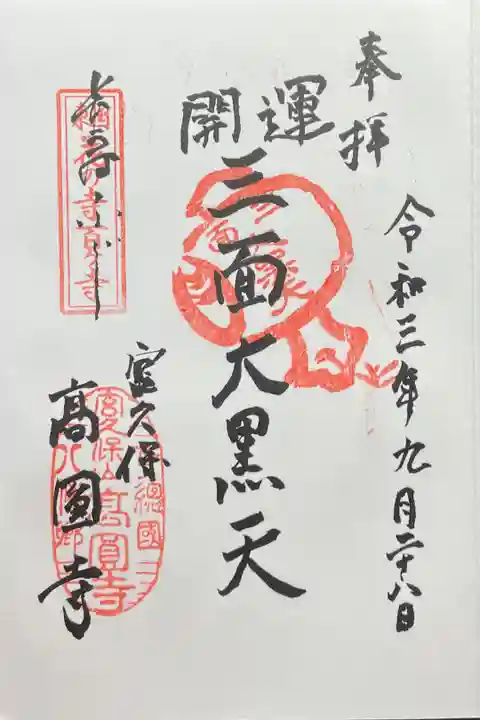 奉拝
令和三年九月二十八日
開運
三面大黒天
長寿
室久保
高圓寺
宮久保山高圓寺